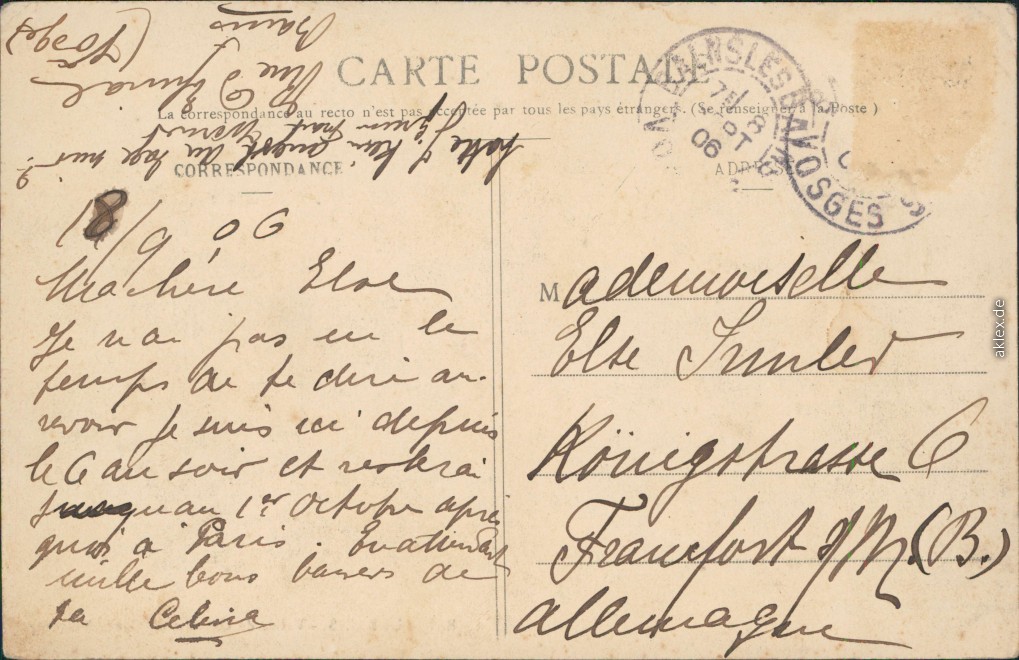 CARTE POSTALE
La correspondance au recto n'est pas acceptée par tous les pays étrangers. (Se renseigner à la Poste)
CORRESPONDANCE
ADRESSE
BAINS LES BAINS VOSGES
8
06
VOSGES
8/9 06
Ma chère Else
Je n'ai pas eu le
temps de te dire au
revoir je suis ici depuis
le 6 au soir et resterai
jusqu'au 1er Octobre après
quoi à Paris. En attendant
mille bons baisers de
ta Celina
Mademoiselle
Else
Königstrasse 6
Francfort s/M. (B.)
Allemagne
Rue d'Epinal
Bains
(Vosges)
aklex.de